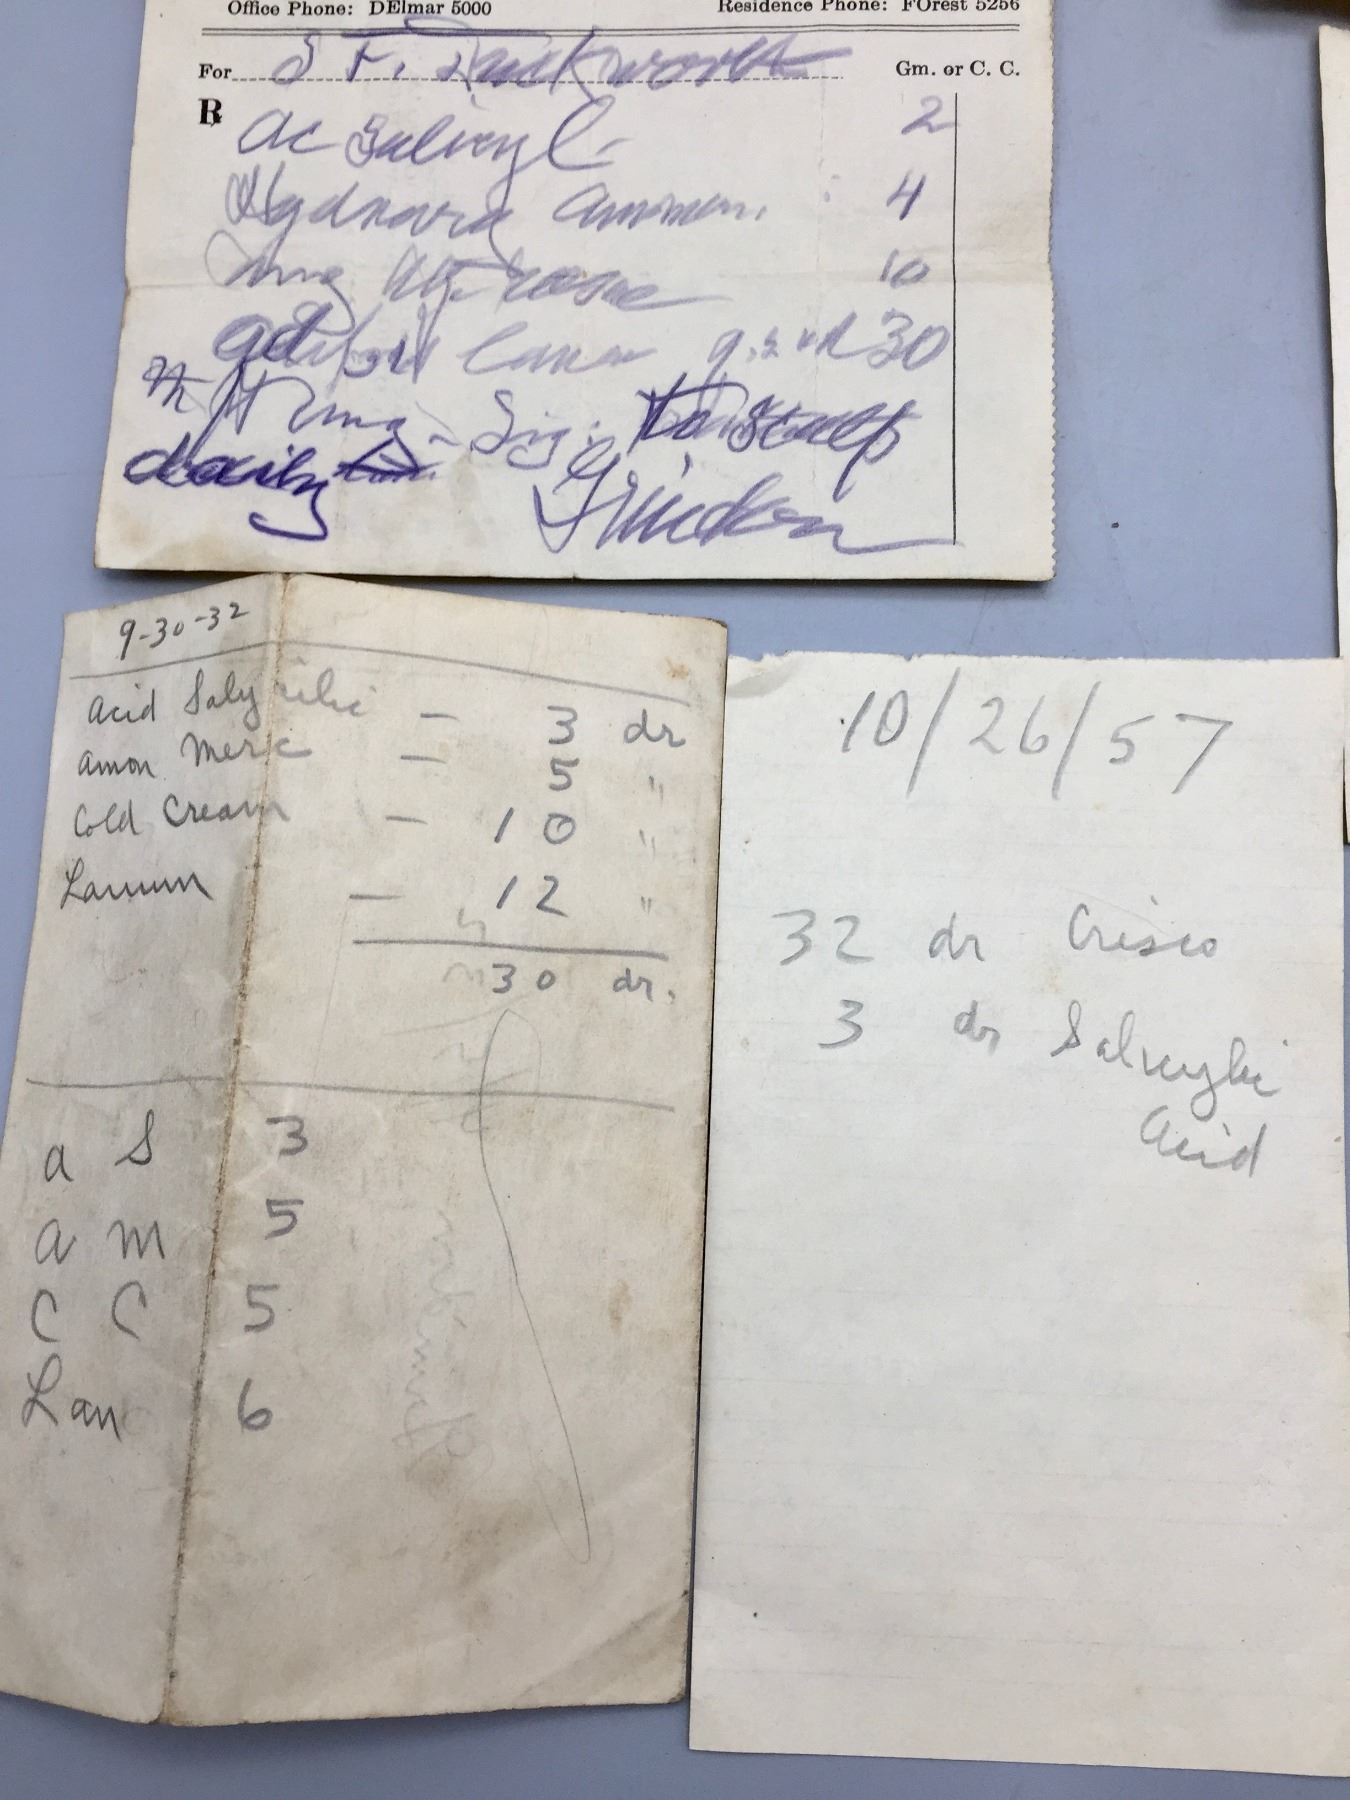 Office Phone: DElmar 5000 Residence Phone: FOrest 5256
For S F. Duckworth Gm. or C. C.
℞
Ac Salicyl. 2
Hydrarg Ammon. 4
Ung Aq. rosae 10
lanae q.s. ad 30
M Ft Ung - Sig. To Scalp
daily
9-30-32
Acid Saly cilic - 3 dr
Amon Merc - 5 "
Cold Cream - 10 "
Lanum - 12 "
30 dr.
a S 3
a m 5
C C 5
Lan 6
10/26/57
32 dr Crisco
3 dr Salicylic
Acid